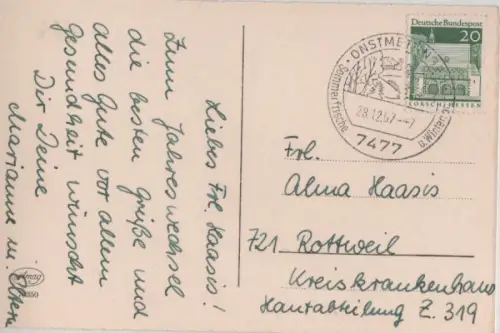 Liebes Frl. Haasis!
Zum Jahreswechsel
die besten Grüße und
alles Gute vor allem
Gesundheit wünscht
Dir Deine
Marianne m. Eltern
Deutsche Bundespost
20
LORSCH/HESSEN
ONSTMETTINGEN
Sommerfrische
u. Winter
28.12.67.--7
7477
Frl.
Alma Haasis
721 Rottweil
Kreiskrankenhaus
Hautabteilung Z. 319